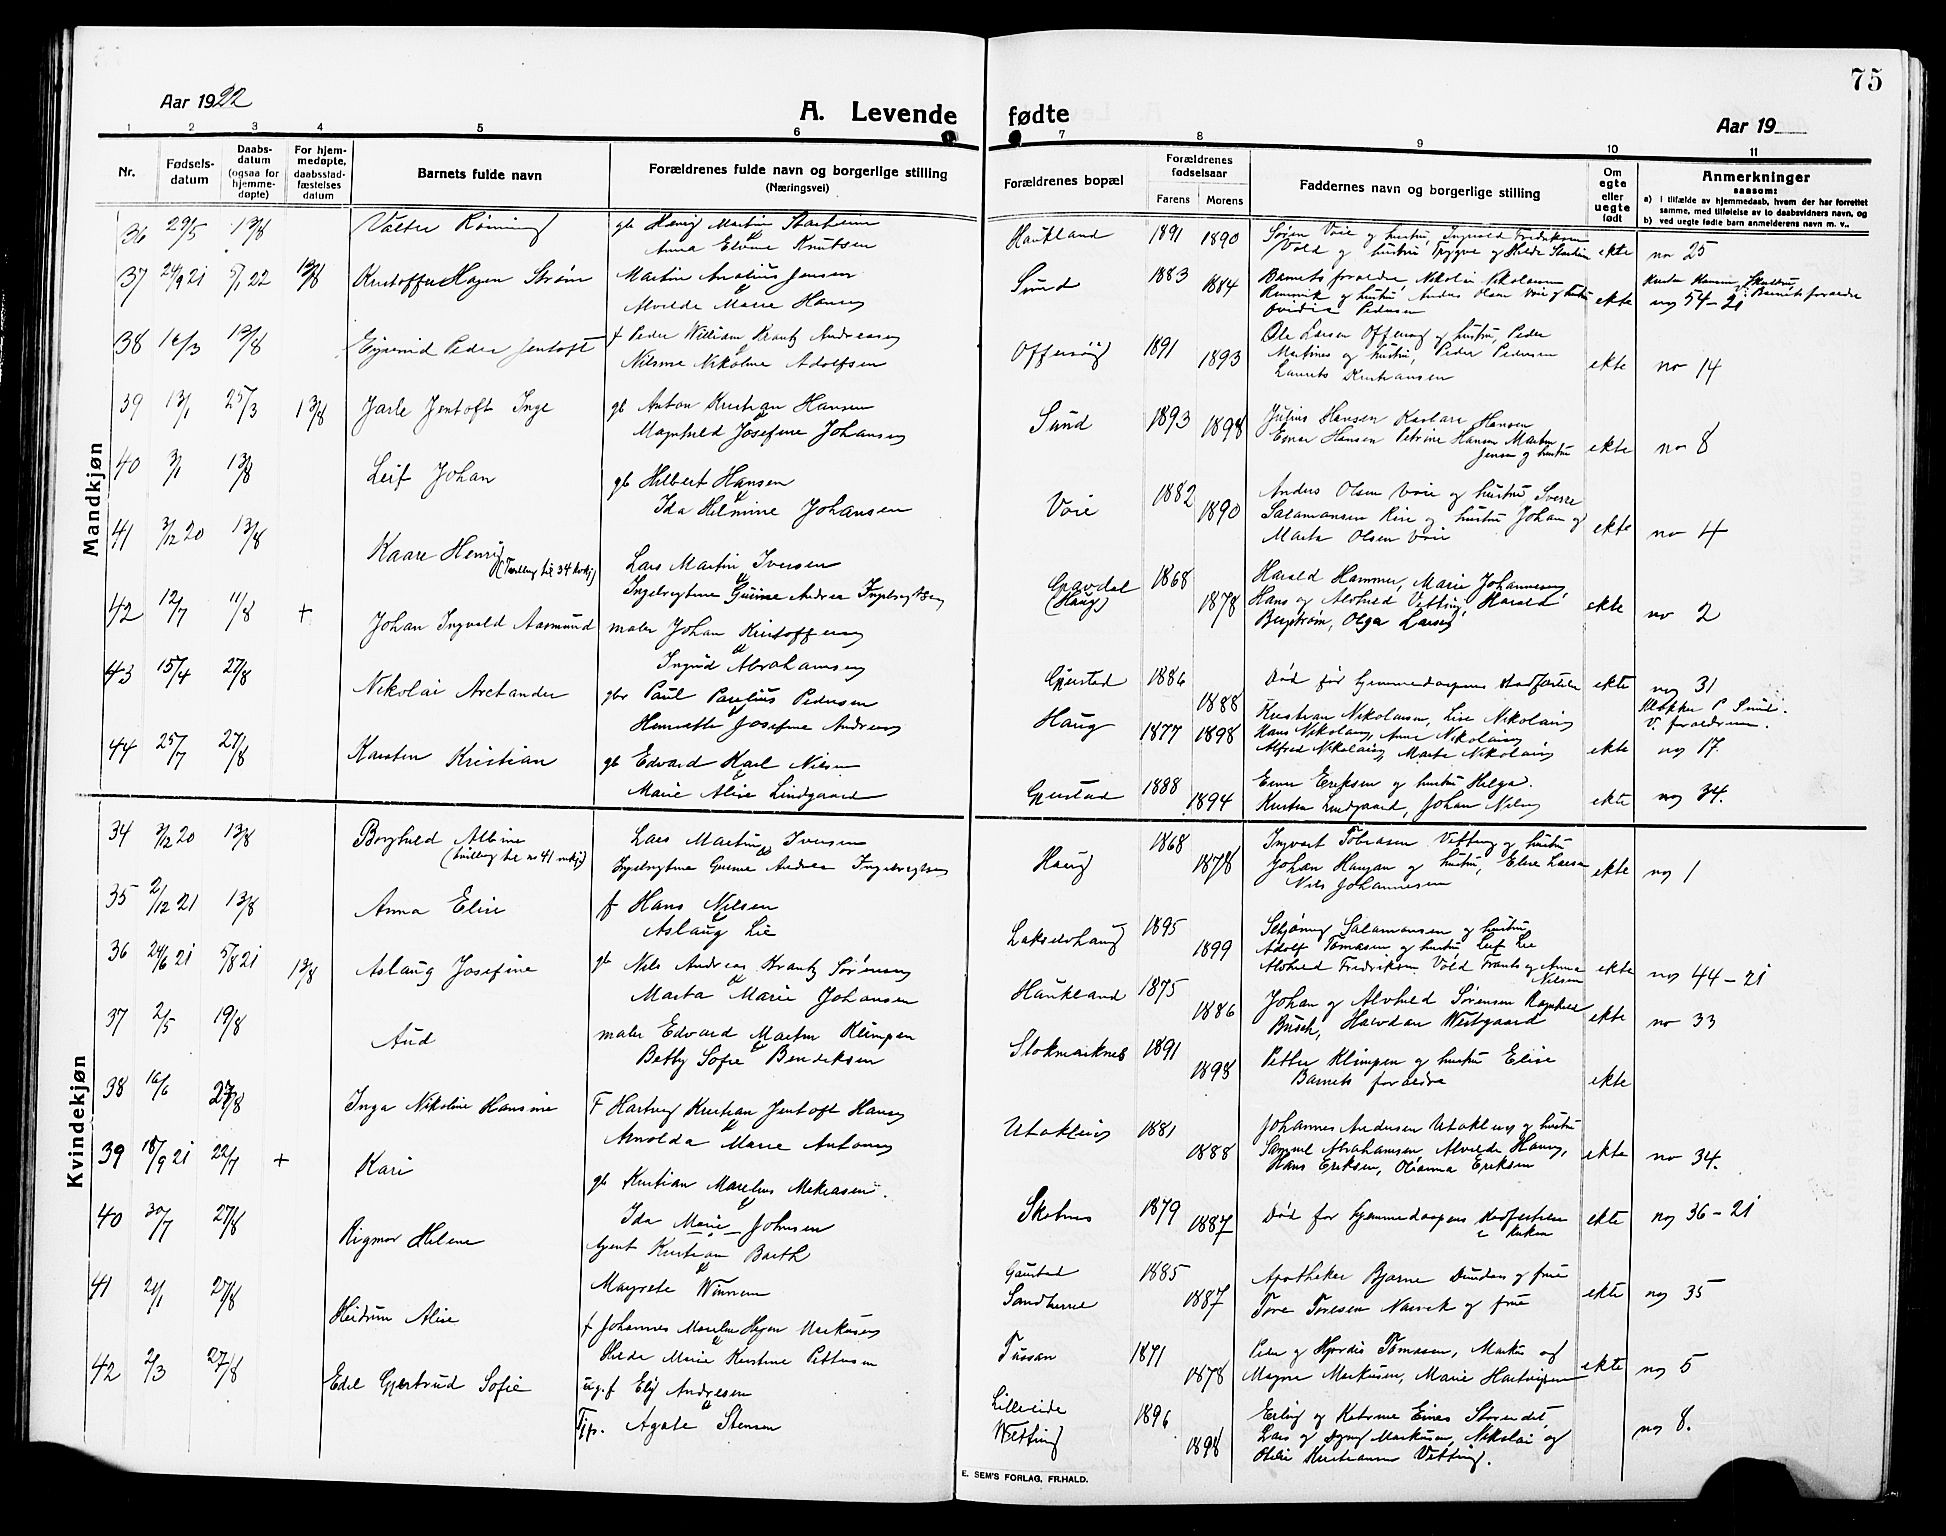 75
Aar 1922
A. Levende fødte
Aar 19
1 2 3 4 5 6 7 8 9 10 11
Nr. Fødsels-datum Daabs-datum (ogsaa for hjemme-døpte) For hjem-medøpte, daabsstad-fæstelses datum Barnets fulde navn Forældrenes fulde navn og borgerlige stilling (Næringsvei) Forældrenes bopæl Forældrenes fødselsaar Farens Morens Faddernes navn og borgerlige stilling Om egte eller uegte født Anmerkninger saasom:
a) i tilfælde av hjemmedaab, hvem der har forrettet samme, med tilføielse av to daabsvidners navn, og
b) ved uegte fødte barn anmelderens navn m. v.
Mandkjøn
36 29/5 13/8 Valter Rönning gb Henrig Martin Starheim Haukland 1891 1890
Anna Elvine Knutsen ekte no 25
37 24/9 21 5/1 22 13/8 Kristoffer Hagen Strøm Martin Analius Jensen Sund 1883 1884 Barnets foraeldre, Nikolai Nikolaisen
Alvilde Marie Hansen ekte no 54-21
38 16/3 13/8 Eyvind Peder Jentoft f Peder William Krantz Andreasen Offersöy 1891 1893 Ole Larsen Offersøy og hustru, Peder
Nilsine Nikoline Adolfsen Martines og hustru, Peder Pedersen
Laurits Kristiansen ekte no 14
39 13/1 25/3 13/8 Jarle Jentoft Inge gb Anton Kristian Hansen Sund 1893 1898 Julius Hansen Hansen
Magnhild Josefine Johansen Einar Hansen Petrine Hansen Martin
Jensen og hustru ekte no 8
40 3/1 13/8 Leif Johan gb Hilbert Hansen Voie 1882 1890 Anders Olsen Voie og hustru Sverre
Ida Helmine Johansen Salamonsen Rise og hustru Johan og
Marta Olsen Voie ekte no 4
41 3/12 20 13/8 Kaare Henrig (Tvilling til 34 kvkj) Lars Martin Iversen Gravdal (Haug) 1868 1878 Harald Hammer, Marie Johannesen,
Ingelvigtine Gurine Andrea Ingebrigtsen Hans og Alvhild Vetting, Harald
Bergstrøm, Olga Larsen ekte no 2
42 12/7 11/8 + Johan Ingvald Aasmund maler Johan Kristoffersen Gjustad 1886 1888 Død før hjemmedaapens stadfæstelse ekte no 31
Ingrid Abrahamsen
43 15/4 27/8 Nikolai Arctander gbr Paul Paulius Pedersen Haug 1877 1898 Kristian Nikolaisen, Lise Nikolaisen
Henriette Josefine Andreasen Hans Nikolaisen, Anne Nikolaisen
Alfred Nikolaisen, Marta Nikolaisen ekte no 17.
44 25/7 27/8 Karsten Kristian gb Edvard Karl Nilsen Gjustad 1888 1894 Einar Eriksen og hustru Helga.
Marie Alise Lindgaard Kirsten Lindgaard, Johan Nilsen ekte no 34.
Kvindekjøn
34 3/12 20 13/8 Borghild Albine (tvilling til no 41 mkj) Lars Martin Iversen Haug 1868 1878 Ingvart Tobiasen Vetting og hustru
Ingelvigtine Gurine Andrea Ingebrigtsen Johan Haugan og hustru, Elise Larsen
Nils Johannesen ekte no 1
35 2/12 21 13/8 Anna Elise f Hans Nilsen Lakselvhaug 1895 1899 Schjøning Salamonsen og hustru
Aslaug Lie Adolf Tomasen og hustru Leif Lie
Alvhild Fredriksen Vold Frants og Anna
Nilsen ekte no 44-21
36 24/6 21 5/8 21 13/8 Aslaug Josefine gb Nils Andreas Krantz Sørensen Haukland 1875 1886 Johan og Alvhild Sørensen Ragnhild
Marta Marie Johansen Busch, Halvdan Westgaard ekte no 33
37 2/5 19/8 Aud maler Edvard Martin Klimpen Stokmarknes 1891 1898 Petter Klimpen og hustru Elise
Betty Sofie Bendiksen Barnets foraeldre ekte
38 16/6 27/8 Inga Nikoline Hansine F Hartvig Kristian Jentoft Hansen Utakleiv 1881 1888 Johannes Andersen Utakleiv og hustru
Arnolda Marie Antonsen Samuel Abrahamsen, Alvilde Hansen,
Hans Eriksen, Olianna Eriksen ekte no 34.
39 18/9 21 22/7 + Kari gb Kristian Marelius Mikkasen. Skotnes 1879 1887 Død før hjemmedaapens stadfæstelse
Ida Marie Johnsen i kirken ekte no 36-21
40 30/7 27/8 Rigmor Helene Agent Kristian Barth Gaustad 1885 1887 Apotheker Bjarne Dundas og frue
Margrete Winnem Sandherne Tore Toresen Narvik og frue ekte no 35
41 21/1 27/8 Heidrun Alise f Johannes Marelius Hagen Markusen Tussan 1871 1878 Peder og Hjørdis Tomasen, Markus og
Hilda Marie Kirstine Pettersen Magna Markusen, Marie Hartvigsen ekte no 5
42 2/3 27/8 Edel Gjertrud Sofie ug.f Elij Andresen Lilleeide 1896 1898 Erling og Katrine Eines Storeidet,
Tjp. Agate Stensen Vetting Lars og Markusen, Nikolai og
Otilie Kristiansen Vetting. no 8.
E. SEM'S FORLAG, FR.HALD.